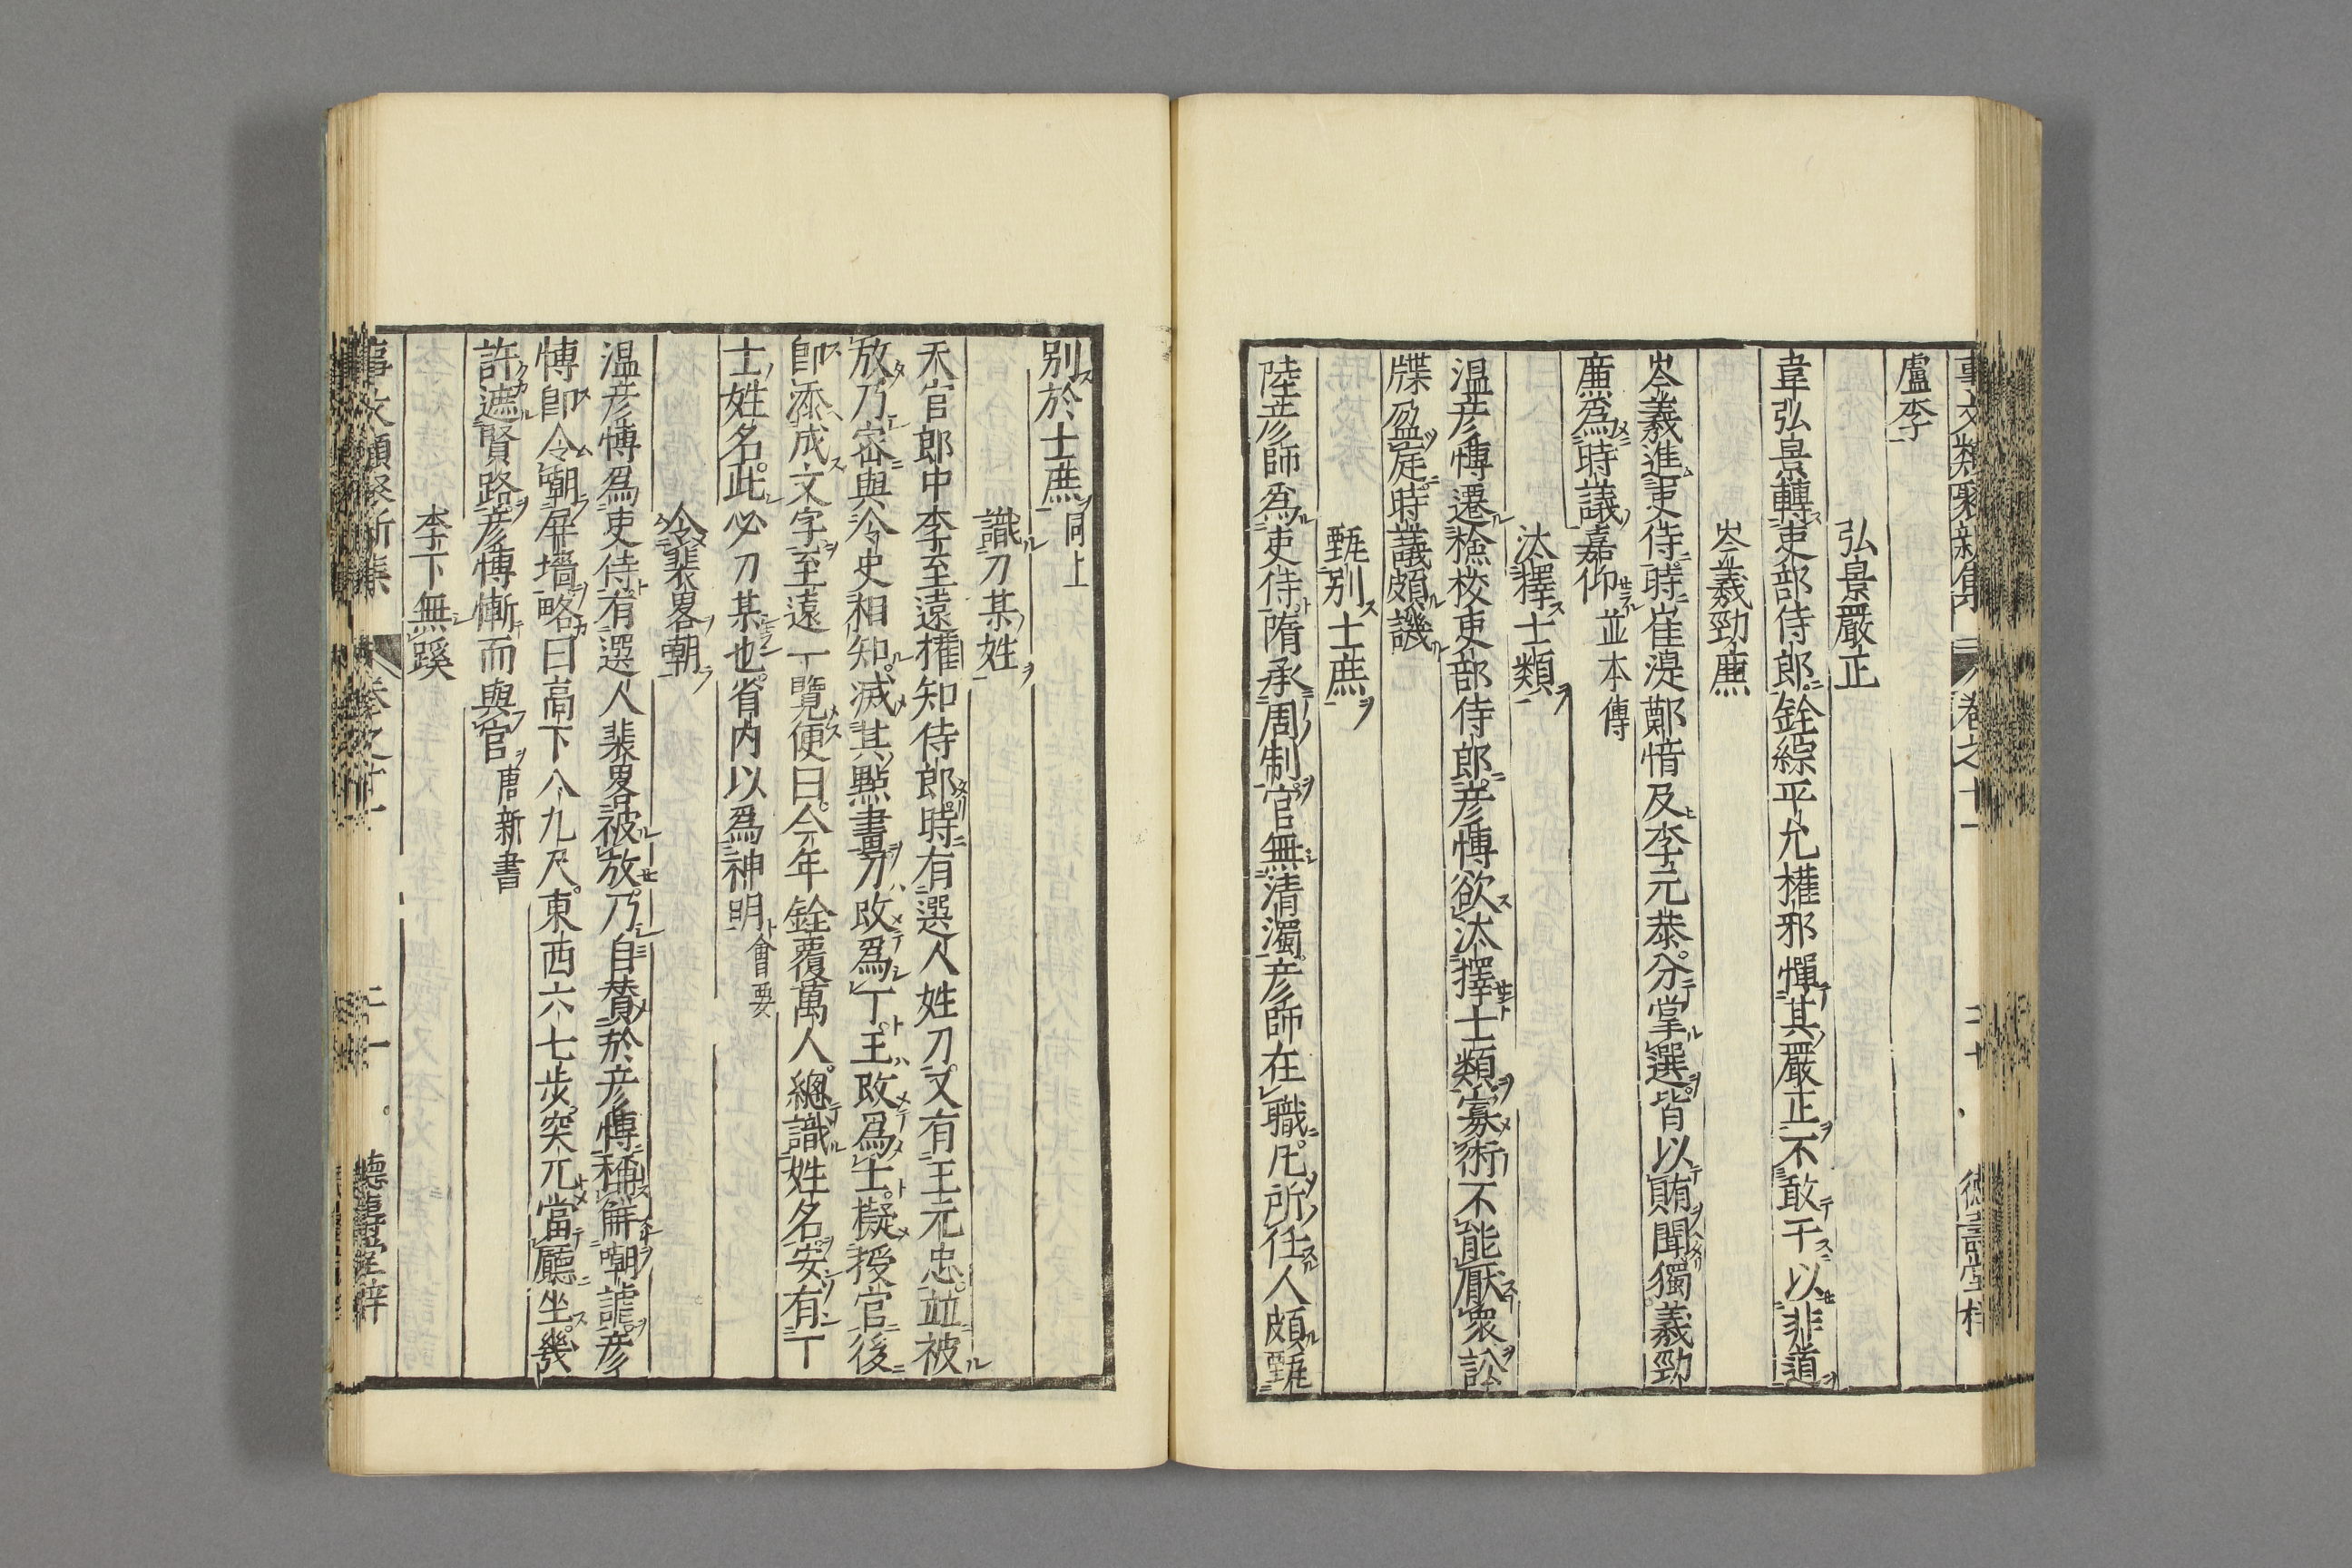 盧李
弘景嚴正
韋弘景轉吏部侍郎銓綜平允權邪憚其嚴正不敢干以非道
岑羲勁廉
岑羲進吏侍時崔湜鄭愔及李元恭分掌選皆以賄聞獨羲勁
廉爲時議嘉仰並本傳
汰擇士類
温彦愽遷檢校吏部侍郎彦愽欲汰擇士類寡術不能厭衆訟
牒盈庭時議頗譏
甄别士庶
陸彦師爲吏侍隋承周制官無清濁彦師在職凡所任人頗甄
别於士庶同上
識刀某姓
天官郎中李至遠權知侍郎時有選人姓刀又有王元忠並被
放乃密與令史相知减其點畫刀改爲丁王改爲士擬授官後
即添成文字至遠一覽便曰今年銓覆萬人總識姓名安有丁
士姓名此必刀某也省内以爲神明會要
令裴畧嘲
温彦愽爲吏侍有選人裴畧被放乃自賛於彦愽稱解嘲謔彦
愽即令嘲屏墻略曰高下八九尺東西六七步突兀當廳坐幾
許遮賢路彦愽慚而與官唐新書
李下無蹊